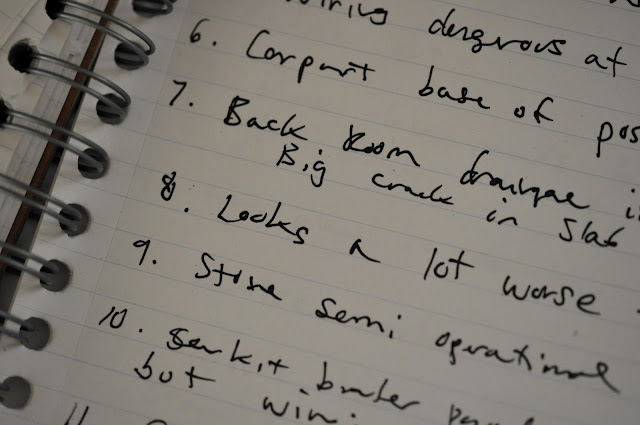 dangerous at
6. Carport base of pos
7. Back Room drainage i
Big crack in slab
8. Looks a lot worse
9. Stove semi operational
10. Serkit braker
but
11.